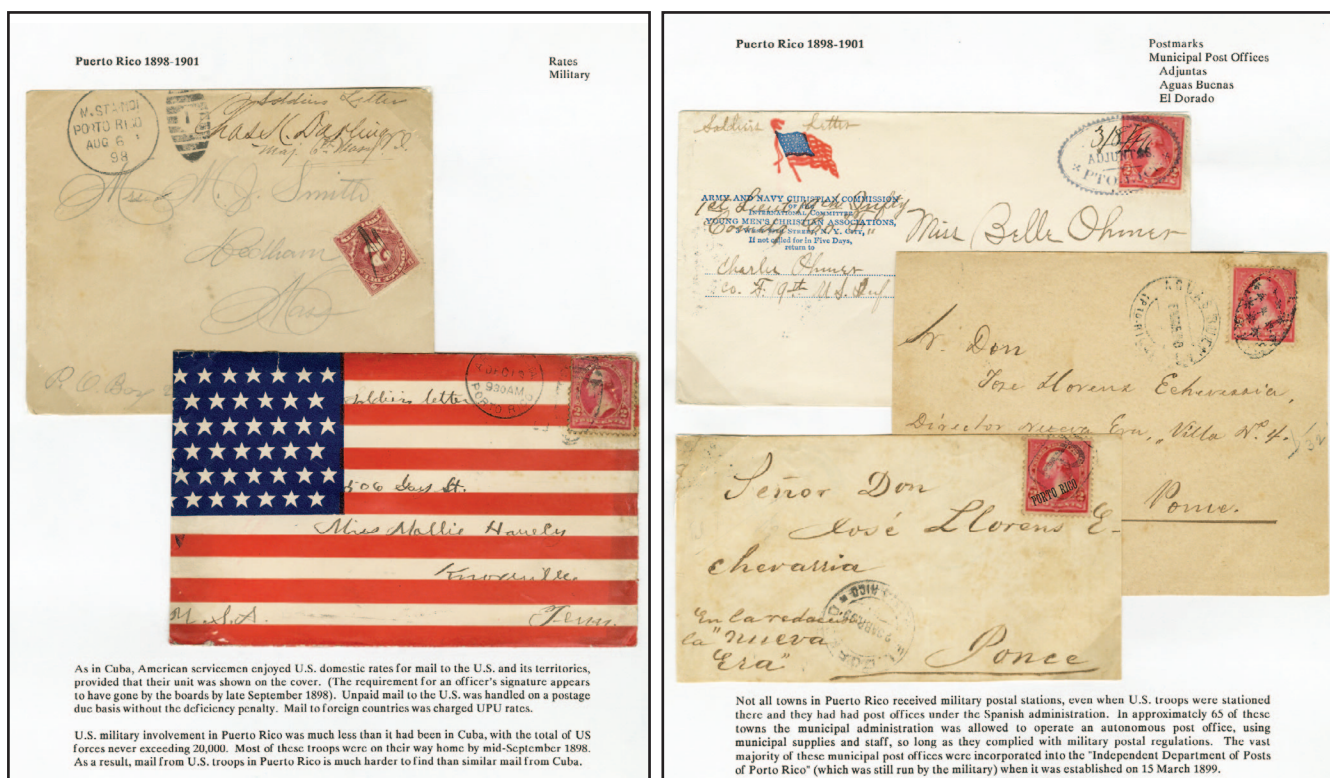 Puerto Rico 1898-1901
Rates
Military
M. STA. NO 1
PORTO RICO
AUG 6
98
Soldiers Letter
Chas K. Darling
Maj. 6th Mass
Mrs M. J. Smith
Mass
P. O. Box
2
930AM
PORTO RICO
Soldiers letter
506 Gay St.
Miss Mollie
Knoxville
U.S.A. Tenn.
As in Cuba, American servicemen enjoyed U.S. domestic rates for mail to the U.S. and its territories,
provided that their unit was shown on the cover. (The requirement for an officer's signature appears
to have gone by the boards by late September 1898). Unpaid mail to the U.S. was handled on a postage
due basis without the deficiency penalty. Mail to foreign countries was charged UPU rates.
U.S. military involvement in Puerto Rico was much less than it had been in Cuba, with the total of US
forces never exceeding 20,000. Most of these troops were on their way home by mid-September 1898.
As a result, mail from U.S. troops in Puerto Rico is much harder to find than similar mail from Cuba.
Puerto Rico 1898-1901
Postmarks
Municipal Post Offices
Adjuntas
Aguas Buenas
El Dorado
Soldiers Letter
ADJUNTAS
ARMY AND NAVY CHRISTIAN COMMISSION
OF THE
INTERNATIONAL COMMITTEE
YOUNG MEN'S CHRISTIAN ASSOCIATIONS,
If not called for in Five Days,
return to
Charlie Ohmer
Co. F. 9th U.S. Inf
Miss Belle Ohmer
Sr. Don
Jose Llorens Echevarria,
Director Nueva Era, Villa Nº 4.
Ponce.
PORTO RICO
Señor Don
José Llorens E-
chevarria
En la redacc
la "Nueva
Era"
Ponce
Not all towns in Puerto Rico received military postal stations, even when U.S. troops were stationed
there and they had had post offices under the Spanish administration. In approximately 65 of these
towns the municipal administration was allowed to operate an autonomous post office, using
municipal supplies and staff, so long as they complied with military postal regulations. The vast
majority of these municipal post offices were incorporated into the "Independent Department of Posts
of Porto Rico" (which was still run by the military) when it was established on 15 March 1899.